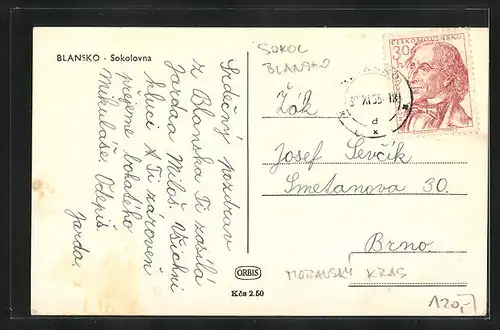 BLANSKO - Sokolovna
Srdečný pozdrav
z Blanska Ti zasílá
Jarda a Miloš. Všichni
kluci A Ti zároveň
přejeme bohatého
Mikuláše. Odepiš
Jarda.
SOKOL
BLANSKO
ČESKOSLOVENSKO
30
XI.55-18
d
Žák
Josef Ševčík
Smetanova 30.
Brno.
MORAVSKÝ KRAS
ORBIS
Kčs 2.50
120,-